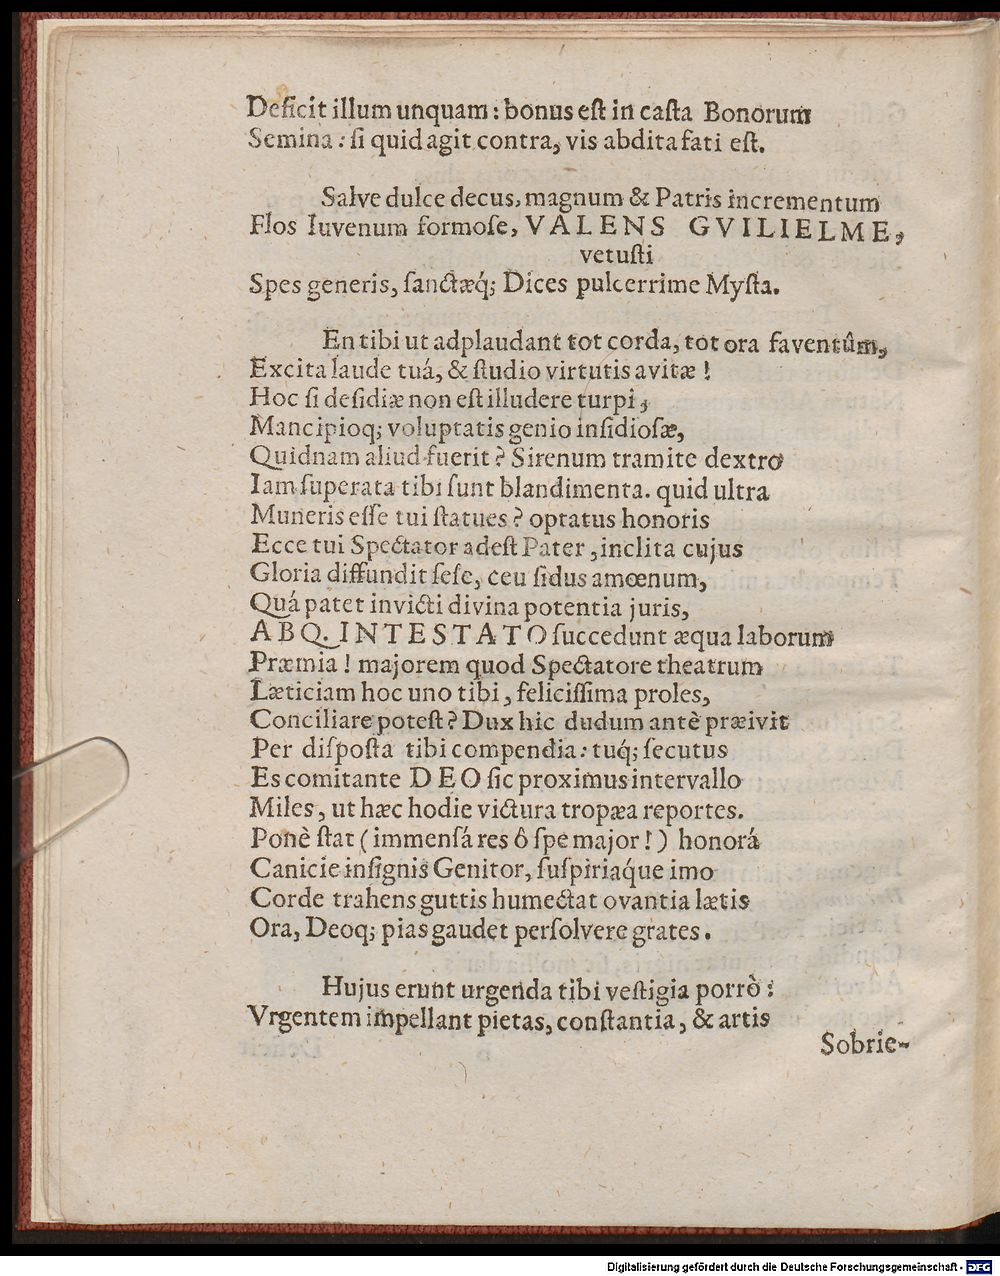 Deficit illum unquam: bonus eſt in caſta Bonorum
Semina: ſi quid agit contra, vis abdita fati eſt.
Salve dulce decus, magnum & Patris incrementum
Flos Iuvenum formoſe, VALENS GVILIELME,
vetuſti
Spes generis, ſanctæq́; Dices pulcerrime Myſta.
En tibi ut adplaudant tot corda, tot ora faventûm,
Excita laude tuá, & ſtudio virtutis avitæ!
Hoc ſi deſidiæ non eſt illudere turpi,
Mancipioq; voluptatis genio inſidioſæ,
Quidnam aliud fuerit? Sirenum tramite dextro
Iam ſuperata tibi ſunt blandimenta. quid ultra
Muneris eſſe tui ſtatues? optatus honoris
Ecce tui Spectator adeſt Pater, inclita cujus
Gloria diffundit ſeſe, ceu ſidus amœnum,
Quá patet invicti divina potentia juris,
ABQ. INTESTATO ſuccedunt æqua laborum
Præmia! majorem quod Spectatore theatrum
Læticiam hoc uno tibi, feliciſſima proles,
Conciliare poteſt? Dux hic dudum antè præivit
Per diſpoſta tibi compendia: tuq́; ſecutus
Es comitante DEO ſic proximus intervallo
Miles, ut hæc hodie victura tropæa reportes.
Ponè ſtat (immenſá res ô ſpe major!) honorá
Canicie inſignis Genitor, ſuſpiriaq́ue imo
Corde trahens guttis humectat ovantia lætis
Ora, Deoq; pias gaudet perſolvere grates.
Hujus erunt urgenda tibi veſtigia porrò:
Vrgentem impellant pietas, conſtantia, & artis
Sobrie-
Digitalisierung gefördert durch die Deutsche Forschungsgemeinschaft - DFG